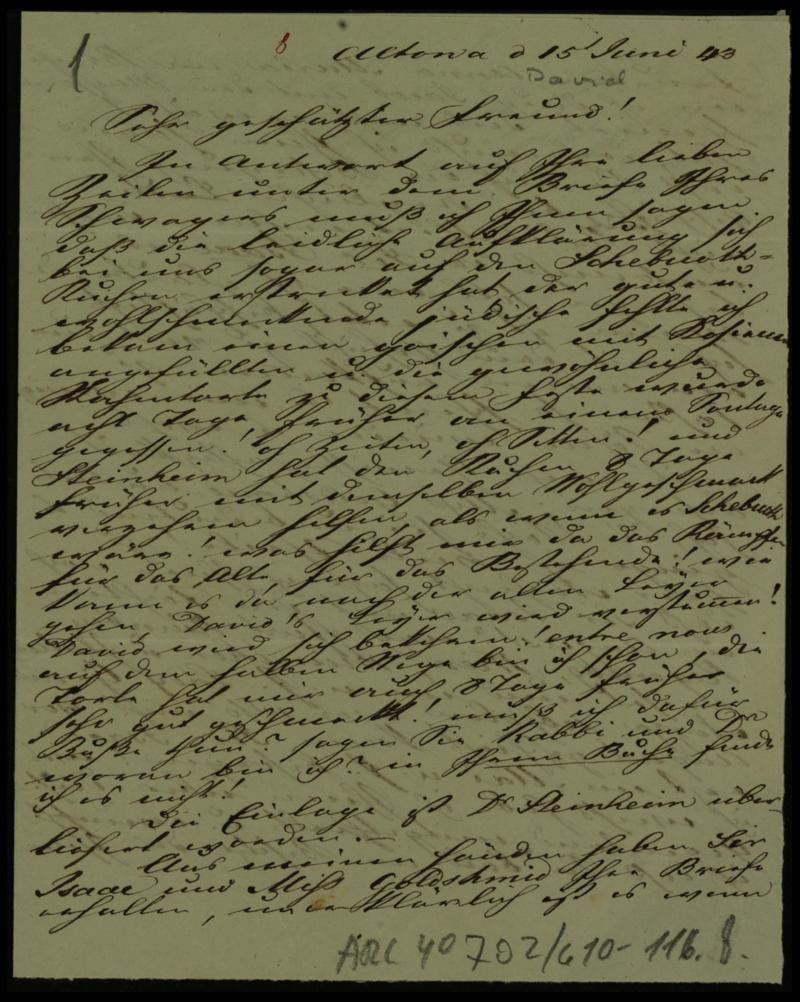 1
8
Altona d 15' Juni 43
David
Sehr geschätzter Freund!
In Antwort auf Ihre lieben
Zeilen unter dem Briefe Ihres
Schwagers muß ich Ihnen sagen
daß die leidliche Aufklärung sich
bei uns sogar auf den Schebuoth-
Kuchen erstrecket hat, der gute u.
wohlschmeckende jüdische fehlte ich
bekam einen goischen mit Rosienen
angefüllten u die gewöhnliche
Rahmtorte zu diesem Feste wurde
acht Tage früher an einem Sontage
gegessen! oh Zeiten, oh Sitten! und
Steinheim hat den Kuchen 8 Tage
früher mit demselben Wohlgeschmack
verzehren helfen, als wenn es Schebuoth
wäre! was hilft mir da das Kämpfen
für das Alte, für das Bestehende! wie
kann es da nach der alten Leyer
gehen, David's Leyer wird verstumen!
David wird sich bekehren! entre nous
auf dem halben Wege bin ich schon, die
Torte hat mir auch 8 Tage früher
sehr gut geschmeckt! muß ich dafür
Buße thun? sagen Sie Rabbi und Dr
woran bin ich? in Ihrem Buche finde
ich es nicht!
Die Einlage ist Dr Steinheim über-
liefert worden. —
Aus meinen Händen haben Sir
Isaac und Miss Goldshmid Ihre Briefe
erhalten, unerklärlich ist es wenn
ARC 4° 792/G10-116. 8.